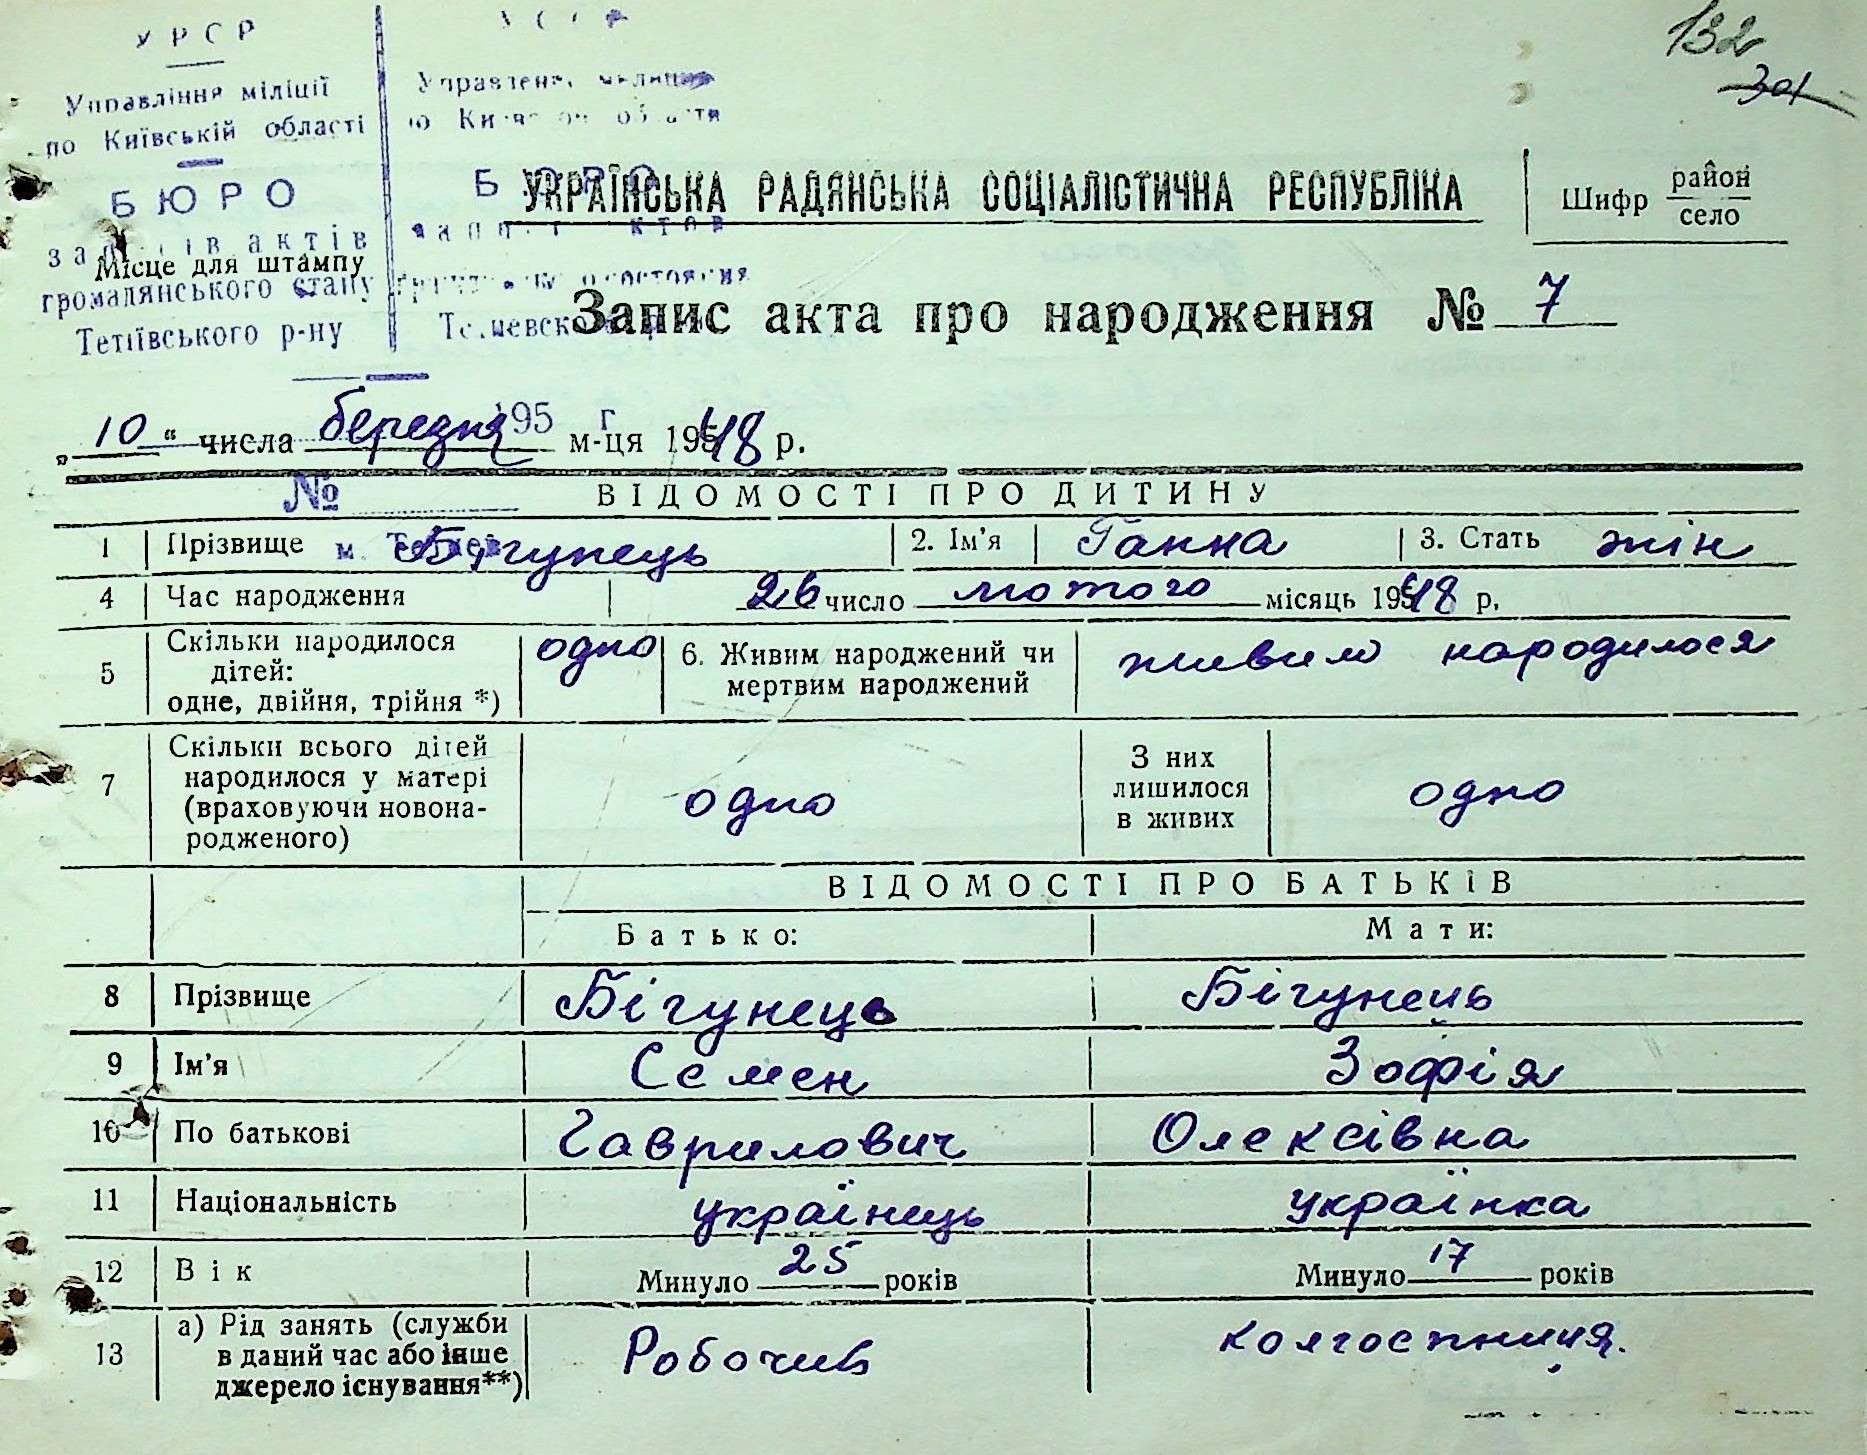 УРСР
Управління міліції
по Київській області
БЮРО
актів
громадянського стану
Тетіївського р-ну
БЮРО
132
301
УКРАЇНСЬКА РАДЯНСЬКА СОЦІАЛІСТИЧНА РЕСПУБЛІКА
Шифр район
село
Місце для штампу
Запис акта про народження № 7
195 г
„10“ числа березня м-ця 1948 р.
№
ВІДОМОСТІ ПРО ДИТИНУ
1 Прізвище м. Бігунець 2. Ім'я Ганна 3. Стать жін
4 Час народження 26 число лютого місяць 1948 р.
5 Скільки народилося дітей: одне, двійня, трійня *) одно 6. Живим народжений чи мертвим народжений живим народилося
7 Скільки всього дітей народилося у матері (враховуючи новона-родженого) одно З них лишилося в живих одно
ВІДОМОСТІ ПРО БАТЬКІВ
Батько: Мати:
8 Прізвище Бігунець Бігунець
9 Ім'я Семен Зофія
10 По батькові Гаврилович Олексівна
11 Національність українець українка
12 Вік Минуло 25 років Минуло 17 років
13 а) Рід занять (служби в даний час або інше джерело існування**) Робочив колгоспниця.